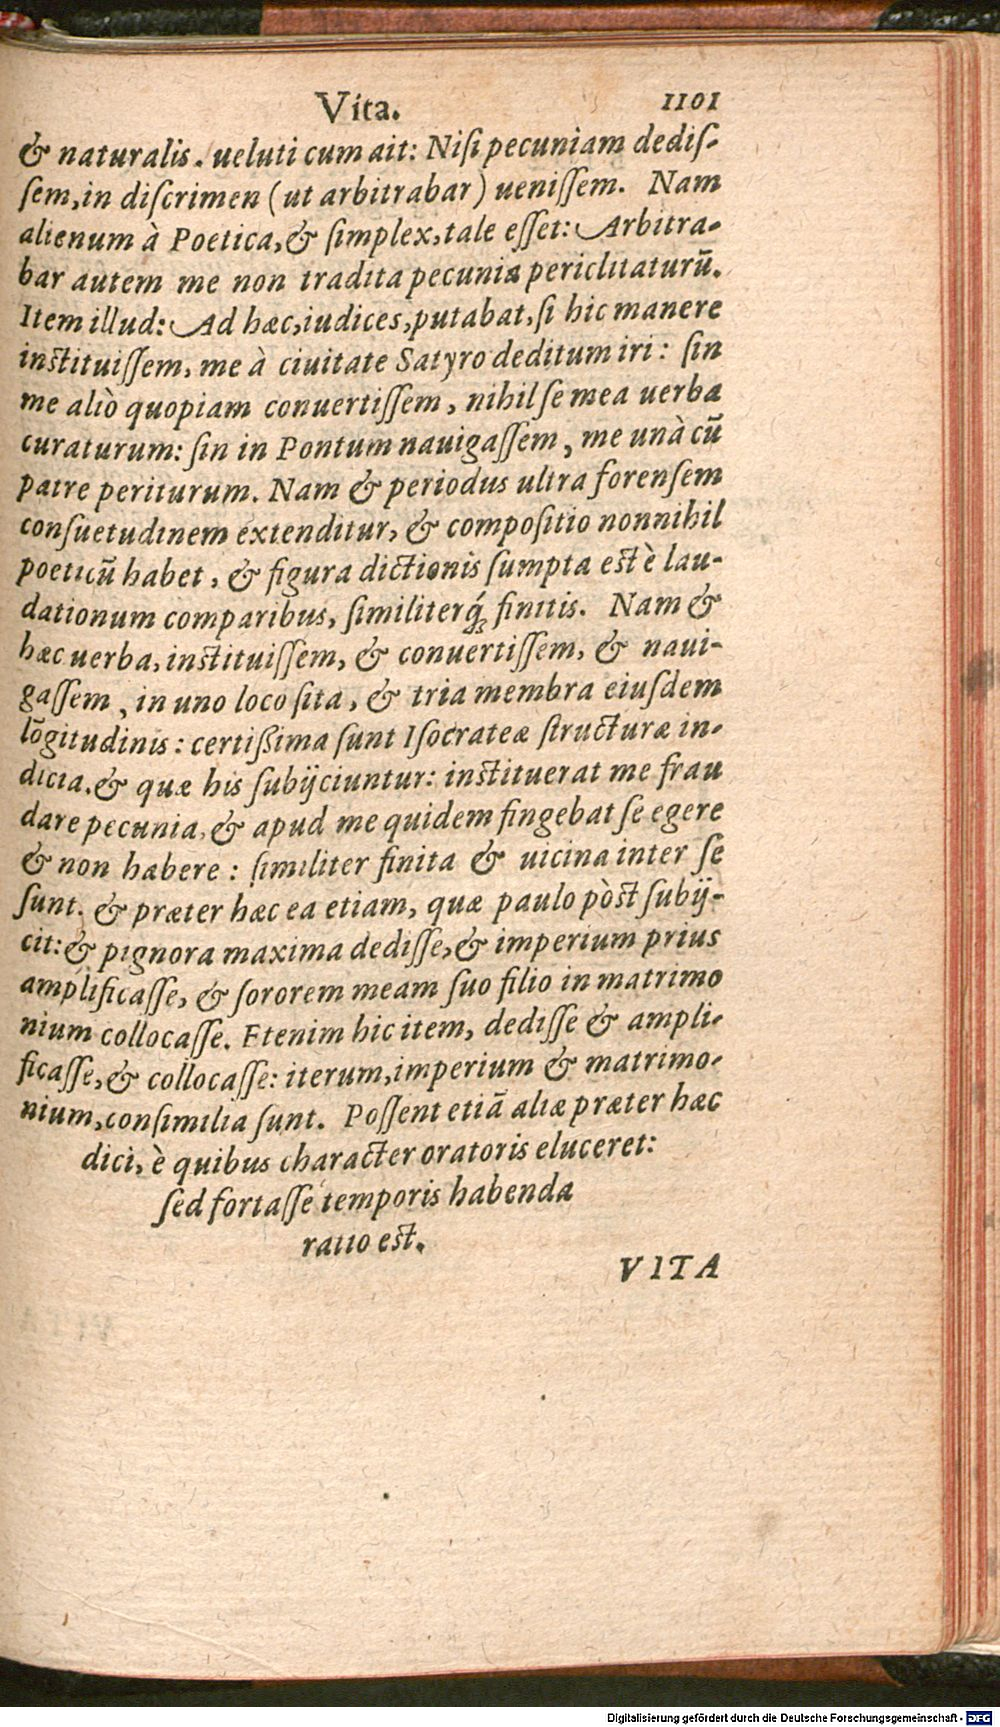 Vita. 1101
& naturalis. ueluti cum ait: Niſi pecuniam dediſ-
ſem, in diſcrimen (ut arbitrabar) ueniſſem. Nam
alienum à Poetica, & ſimplex, tale eſſet: Arbitra-
bar autem me non tradita pecunia periclitaturũ.
Item illud: Ad hæc, iudices, putabat, ſi hic manere
inſtituiſſem, me à ciuitate Satyro deditum iri: ſin
me aliò quopiam conuertiſſem, nihil ſe mea uerba
curaturum: ſin in Pontum nauigaſſem, me unà cũ
patre periturum. Nam & periodus ultra forenſem
conſuetudinem extenditur, & compoſitio nonnihil
poeticũ habet, & figura dictionis ſumpta eſt è lau-
dationum comparibus, ſimiliterq́; finitis. Nam &
hæc uerba, inſtituiſſem, & conuertiſſem, & naui-
gaſſem, in uno loco ſita, & tria membra eiuſdem
lõgitudinis: certißima ſunt Iſocrateæ ſtructuræ in-
dicia. & quæ his ſubijciuntur: inſtituerat me frau
dare pecunia, & apud me quidem fingebat ſe egere
& non habere: ſimiliter finita & uicina inter ſe
ſunt. & præter hæc ea etiam, quæ paulo pòſt ſubij-
cit: & pignora maxima dediſſe, & imperium prius
amplificaſſe, & ſororem meam ſuo filio in matrimo
nium collocaſſe. Etenim hic item, dediſſe & ampli-
ficaſſe, & collocaſſe: iterum, imperium & matrimo-
nium, conſimilia ſunt. Poſſent etiã aliæ præter hæc
dici, è quibus character oratoris eluceret:
ſed fortaſſe temporis habenda
ratio eſt.
VITA
Digitalisierung gefördert durch die Deutsche Forschungsgemeinschaft - DFG